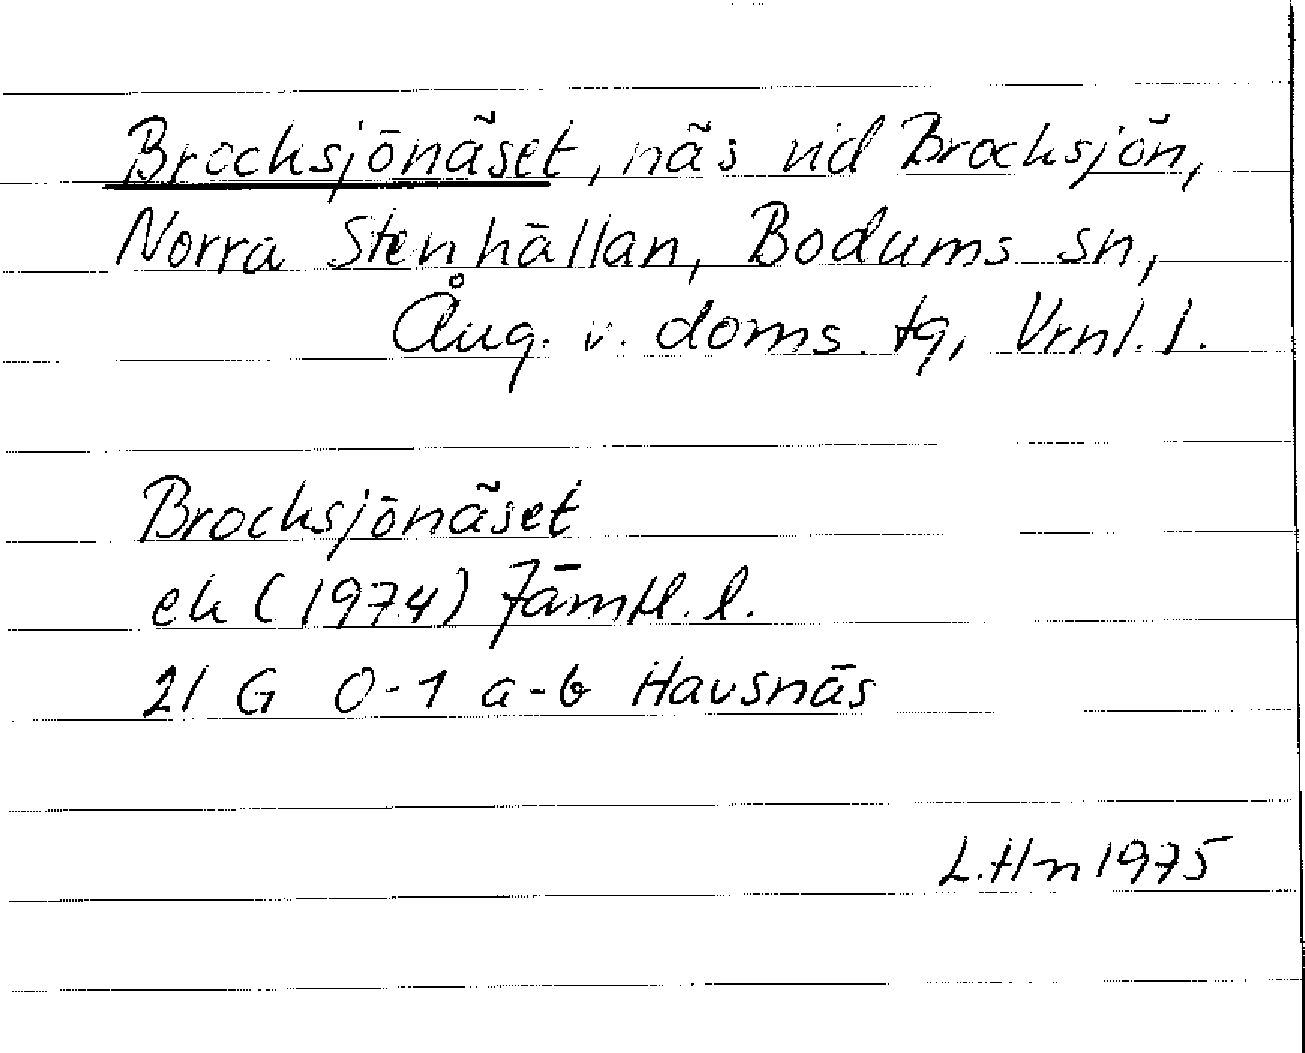 Brocksjönäset, näs vid Brocksjön,
Norra Stenhällan, Bodums sn,
Ång. v. doms. tg, Vrnl. l.
Brocksjönäset
ek (1974) Jämtl. l.
21 G 0-1 a-b Havsnäs
L. Hn 1975